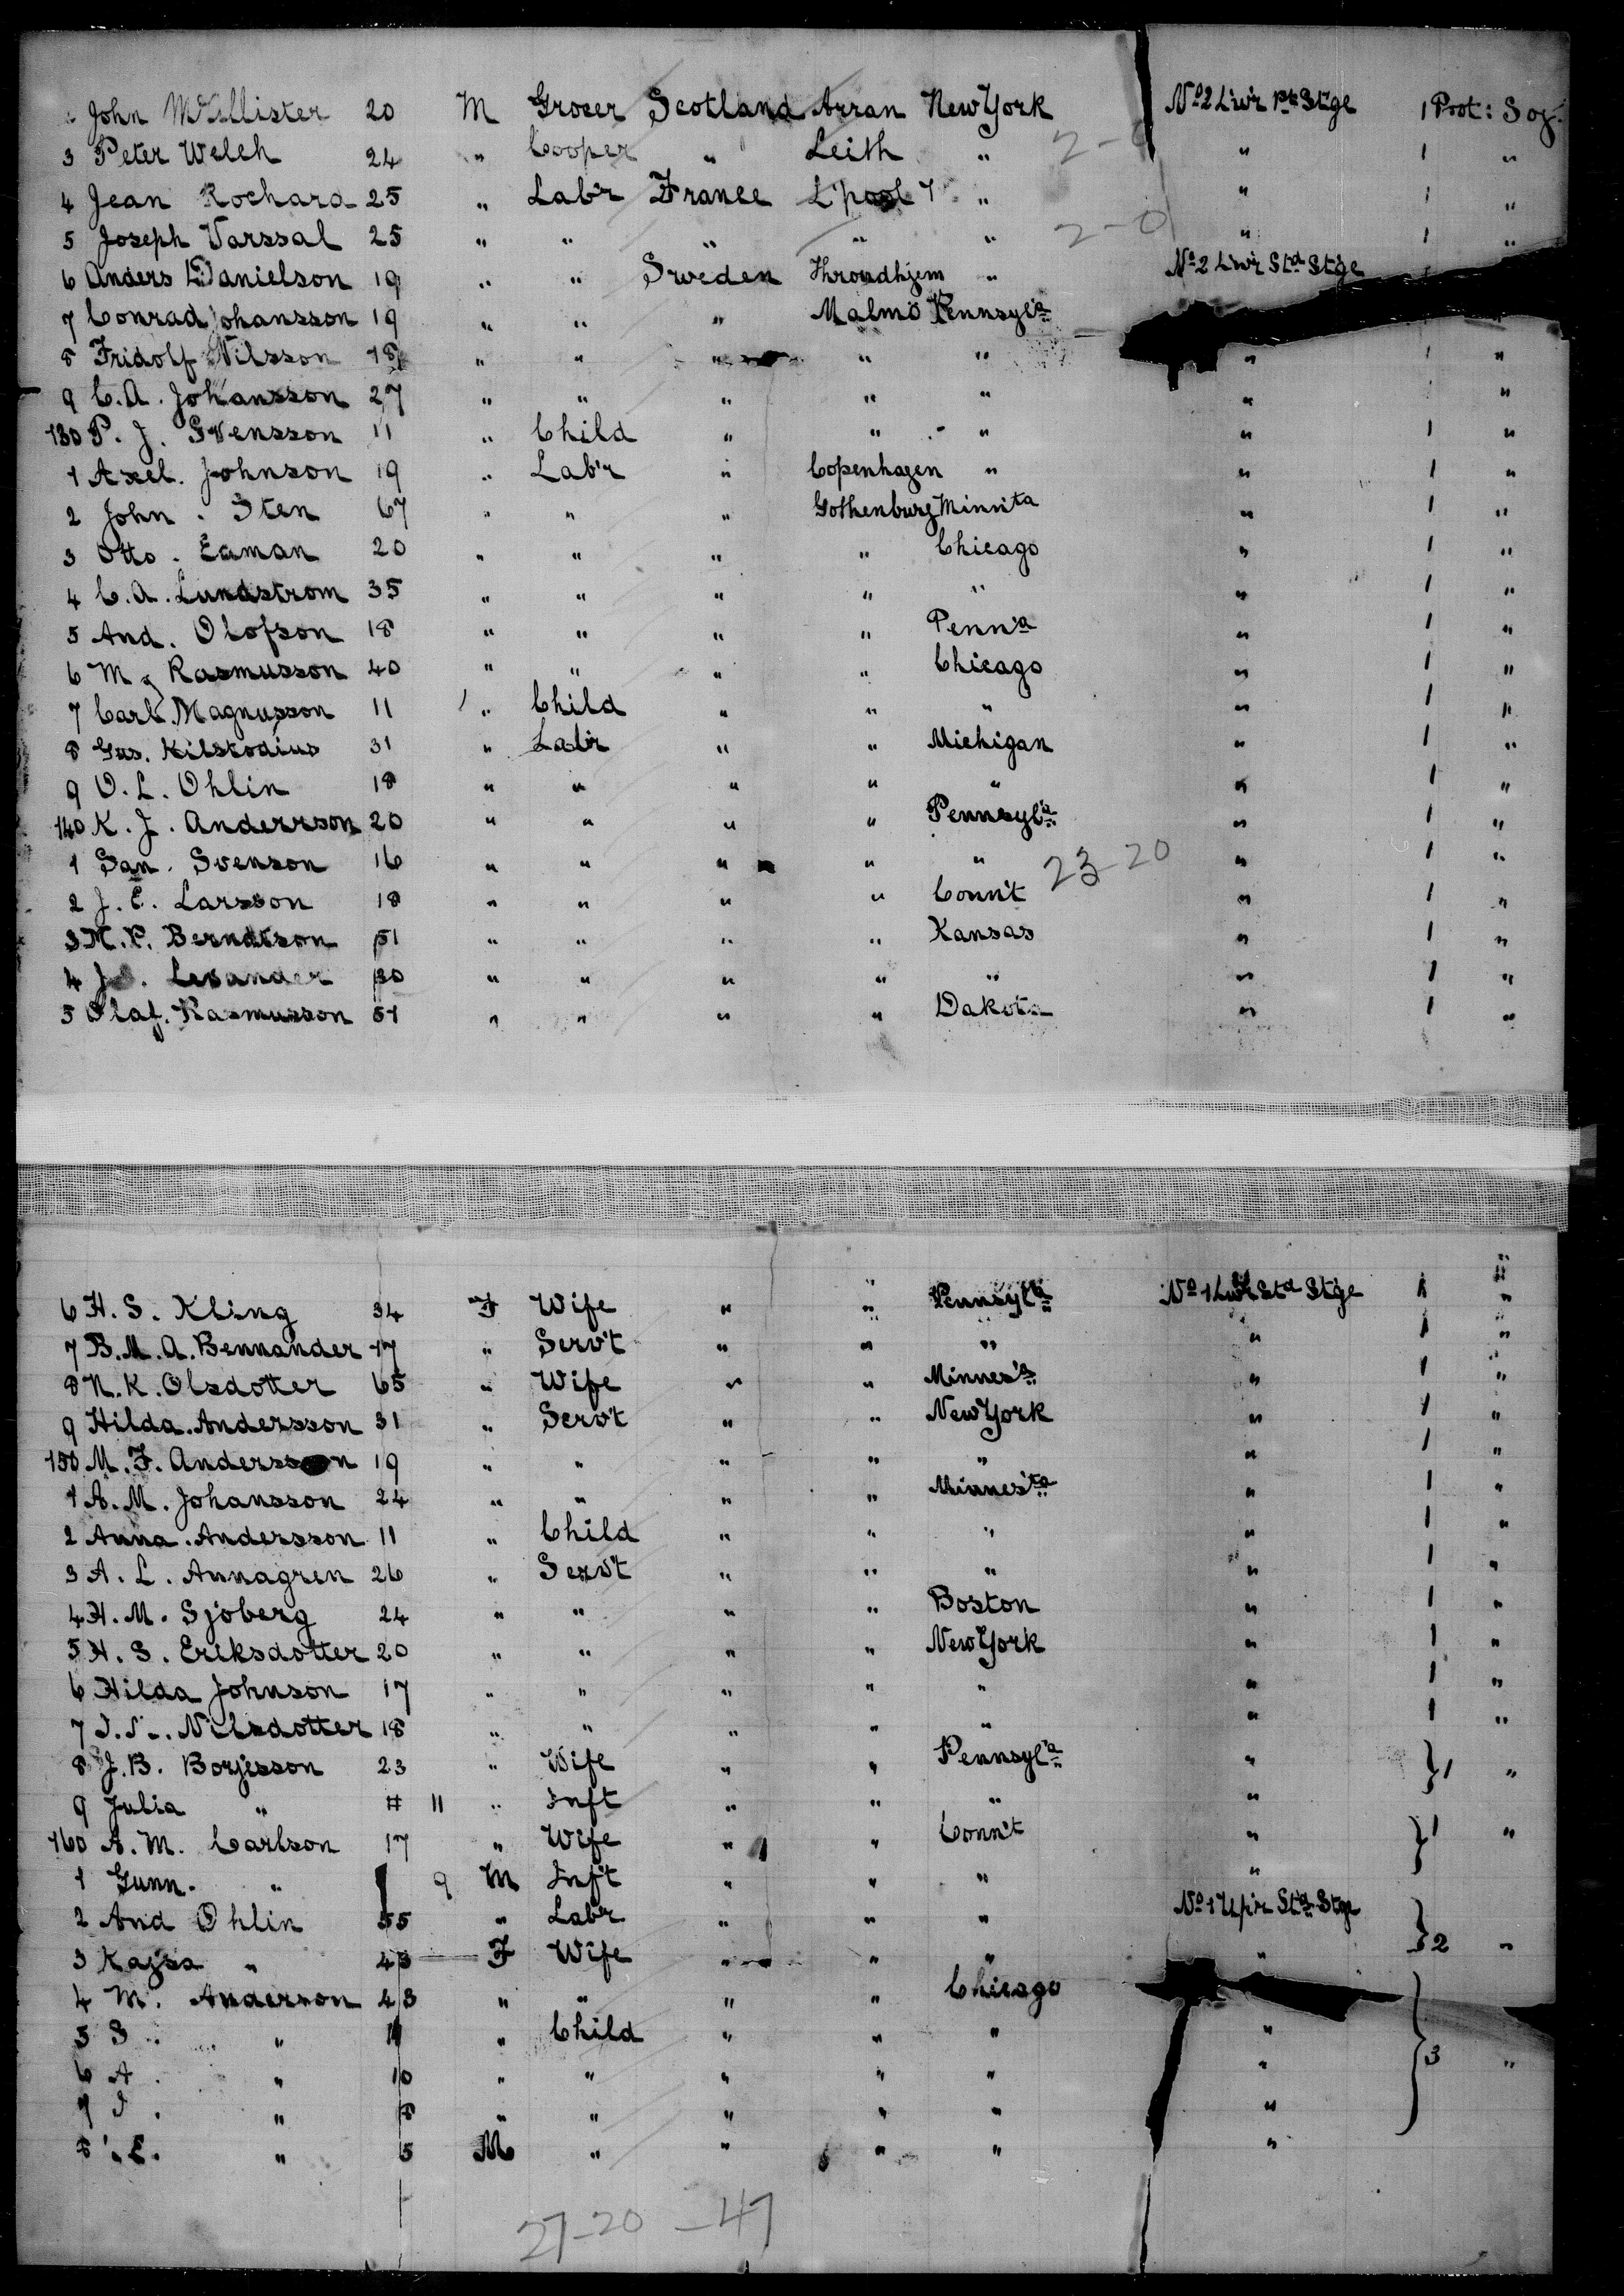 John McAllister 20 M Grocer Scotland Arran New York Nº2 Lw'r Pt Stge 1 Prot: Soj.
3 Peter Welch 24 " Cooper " Leith " " 1 "
4 Jean Rochard 25 " Lab'r France L'pool " " 1 "
5 Joseph Varssal 25 " " " " " " 1 "
6 Anders Danielson 19 " " Sweden Throndhjem " Nº2 Lw'r Std Stge
7 Conrad Johansson 19 " " " Malmö Pennsyl'a
8 Fridolf Nilsson 18 " " " " " " 1 "
9 C.A. Johansson 27 " " " " " " "
130 P. J. Svensson 11 " Child " " " " 1 "
1 Axel. Johnson 19 " Lab'r " Copenhagen " " 1 "
2 John. Sten 67 " " " Gothenburg Minnita " 1 "
3 Otto. Eaman 20 " " " " Chicago " 1 "
4 C.A. Lundstrom 35 " " " " " " 1 "
5 And. Olofson 18 " " " " Penn'a " 1 "
6 M. Rasmusson 40 " " " " Chicago " 1 "
7 Carl. Magnusson 11 " Child " " " " 1 "
8 Gus. Kilstodius 31 " Lab'r " " Michigan " 1 "
9 O. L. Ohlin 18 " " " " " " 1 "
140 K. J. Anderrson 20 " " " " Pennsyl'a " 1 "
1 San. Svenson 16 " " " " " 23-20 " 1 "
2 J. E. Larsson 18 " " " " Conn't " 1 "
3 M. P. Berndtson 51 " " " " Kansas " 1 "
4 J. Levander 30 " " " " " " 1 "
5 Olaf. Rasmusson 51 " " " " Dakota " 1 "
6 H. S. Kling 34 F Wife " " Pennsyl'a Nº 1 Lw'r Std Stge 1 "
7 B.M.A. Bennander 17 " Serv't " " " " 1 "
8 N.K. Olsdotter 65 " Wife " " Minnes'a " 1 "
9 Hilda. Andersson 31 " Serv't " " New York " 1 "
150 M. F. Andersson 19 " " " " " " 1 "
1 A. M. Johansson 24 " " " " Minnes'ta " 1 "
2 Anna. Andersson 11 " Child " " " " 1 "
3 A. L. Annagren 26 " Serv't " " " " 1 "
4 H. M. Sjoberg 24 " " " " Boston " 1 "
5 H. S. Eriksdotter 20 " " " " New York " 1 "
6 Hilda Johnson 17 " " " " " " 1 "
7 Nilsdotter 18 " " " " " " 1 "
8 J. B. Borjesson 23 " Wife " " Pennsyl'a " } 1 "
9 Julia " 11 " Inft " " " "
160 A. M. Carlson 17 " Wife " " Conn't " } 1 "
1 Gunn. " 9 M Inf't " " " "
2 And Ohlin 55 " Lab'r " " " Nº 1 Up'r Std Stge } 2 "
3 Kajsa " 43 F Wife " " " "
4 M. Anderson 43 " " " " Chicago
5 S. " 11 " Child " " " " } 3 "
6 A. " 10 " " " " " "
7 J. " 8 " " " " " "
8 E. " 5 M " " " " "
27-20-47